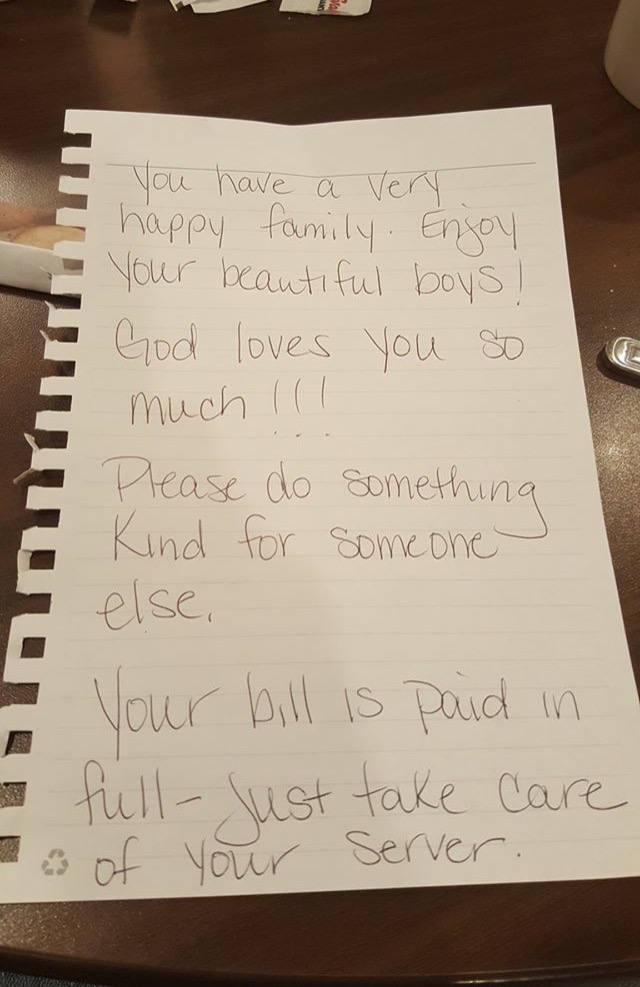 You have a very
happy family. Enjoy
your beautiful boys!
God loves you so
much!!!
Please do something
kind for someone
else.
Your bill is paid in
full- just take care
of your server.